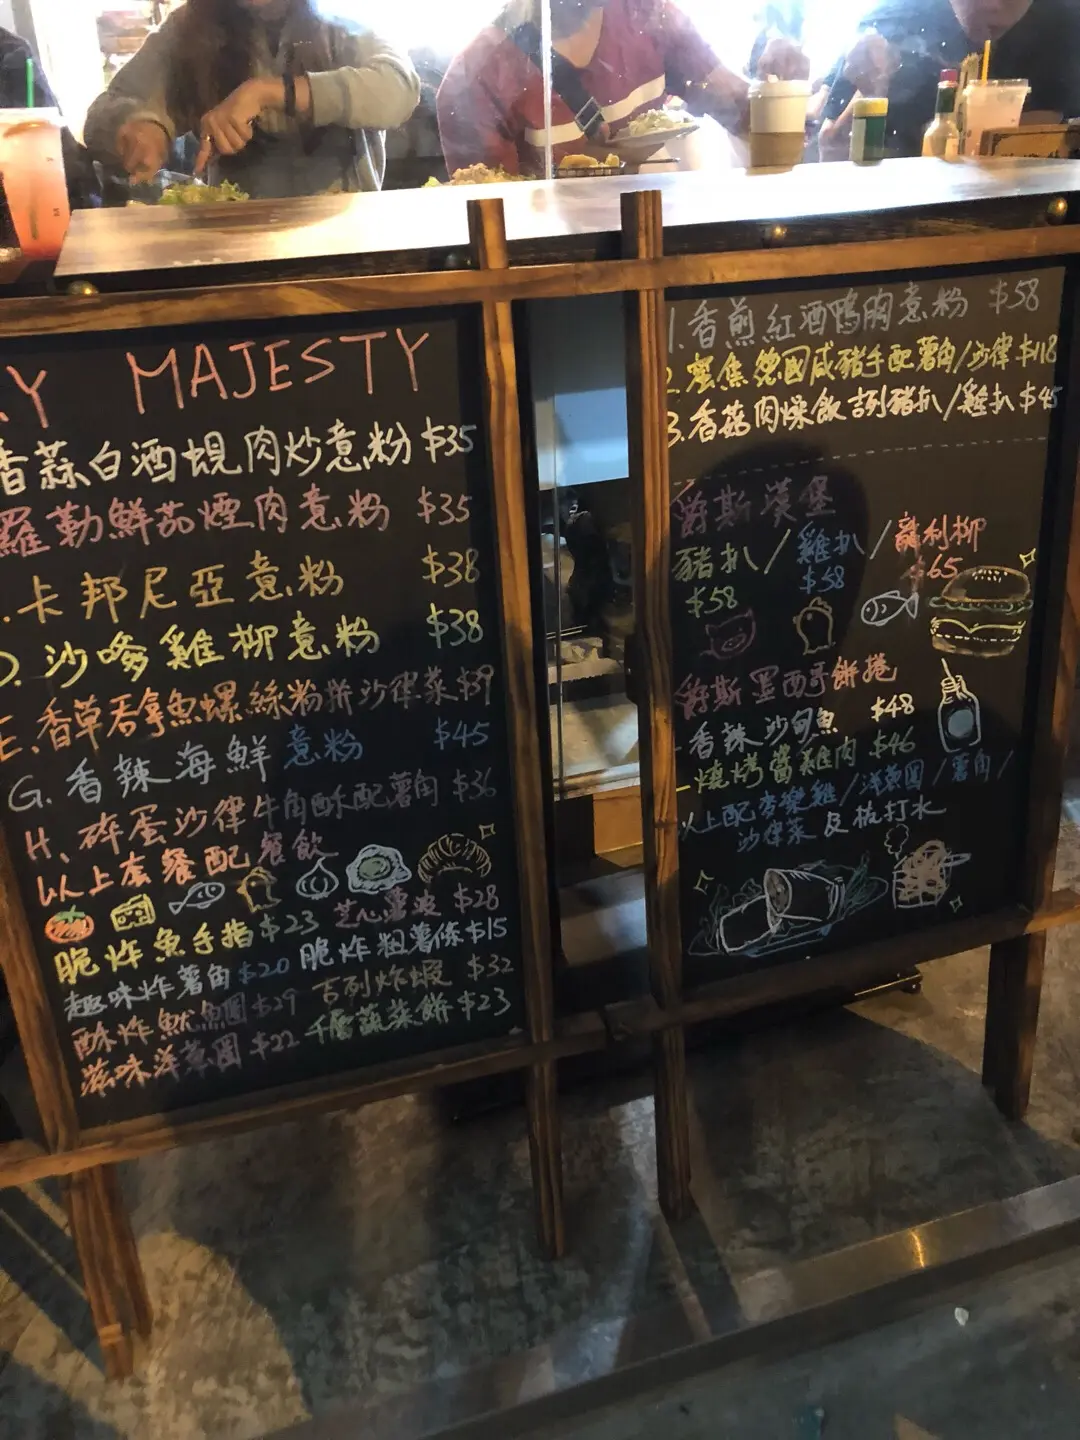 Y MAJESTY
香蒜白酒蜆肉炒意粉 $35
羅勒鮮茄煙肉意粉 $35
.卡邦尼亞意粉 $38
D.沙嗲雞柳意粉 $38
E.香草吞拿魚螺絲粉拼沙律菜 $39
G.香辣海鮮意粉 $45
H.碎蛋沙律牛角酥配薯角 $36
以上套餐配餐飲
脆炸魚手指 $23 芝心薯波 $28
趣味炸薯角 $20 脆炸粗薯條 $15
酥炸魷魚圈 $29 吉列炸蝦 $32
滋味洋蔥圈 $22 千層蔬菜餅 $23
1.香煎紅酒鴨胸意粉 $58
2.蜜焦德國咸豬手配薯角/沙律 $118
3.香菇肉燥飯吉列豬扒/雞扒 $45
爵斯漢堡
豬扒/雞扒/龍利柳
$58 $58 $65
爵斯墨西哥餅捲
-香辣沙甸魚 $48
-燒烤醬雞肉 $46
以上配麥樂雞/洋蔥圈/薯角/
沙律菜及梳打水